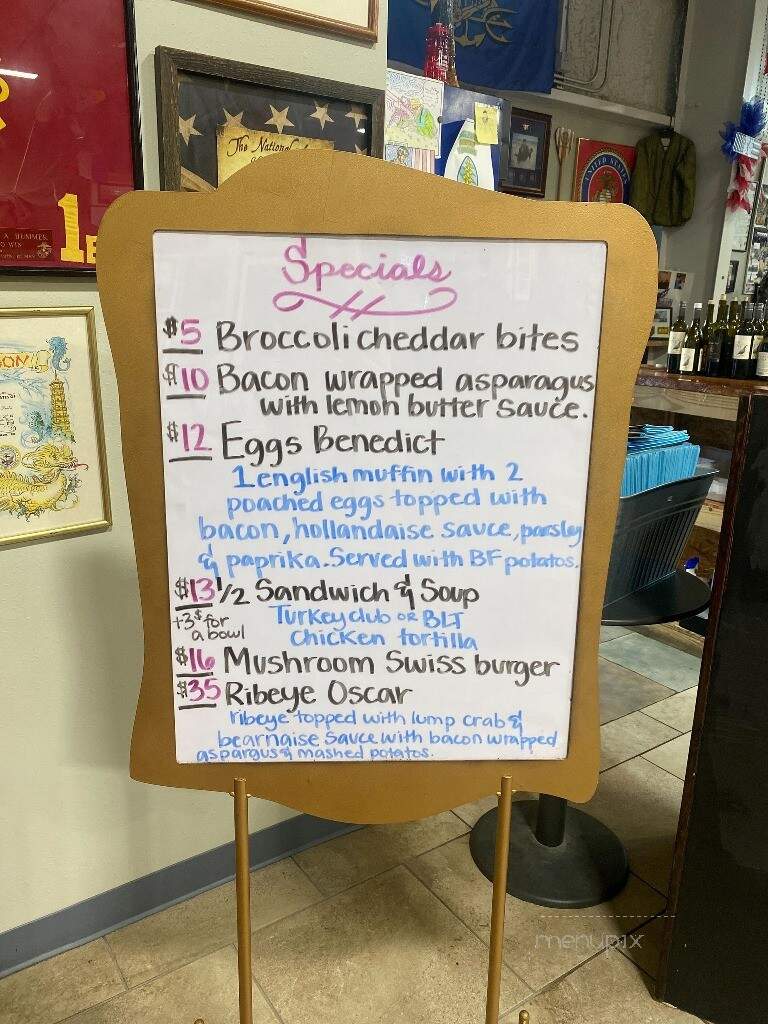 The National
1
A HUMMER
O WIN
SON
UNITED STATES
Specials
$5 Broccoli cheddar bites
$10 Bacon wrapped asparagus
with lemon butter sauce.
$12 Eggs Benedict
1 english muffin with 2
poached eggs topped with
bacon, hollandaise sauce, parsley
& paprika. Served with BF potatos.
$13 1/2 Sandwich & Soup
+3$ for Turkey club or BLT
a bowl chicken tortilla
$16 Mushroom Swiss burger
$35 Ribeye Oscar
ribeye topped with lump crab &
bearnaise sauce with bacon wrapped
aspargus & mashed potatos.
menupix